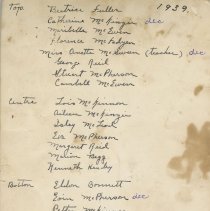 Top. Beatrice Fuller 1939.
Catherine McKinnon dec
Maribelle McEwen
Florence McFadyen
Miss Annetta McEwen (teacher) dec
George Reid
Stuart McPherson
Campbell McEwen
Centre Lois McKinnon
Aileen McKinnon
Isabel McLeod
Eva McPherson
Margaret Reid
Marion
Kenneth
Bottom Eldon Bennett
Evin McPherson dec